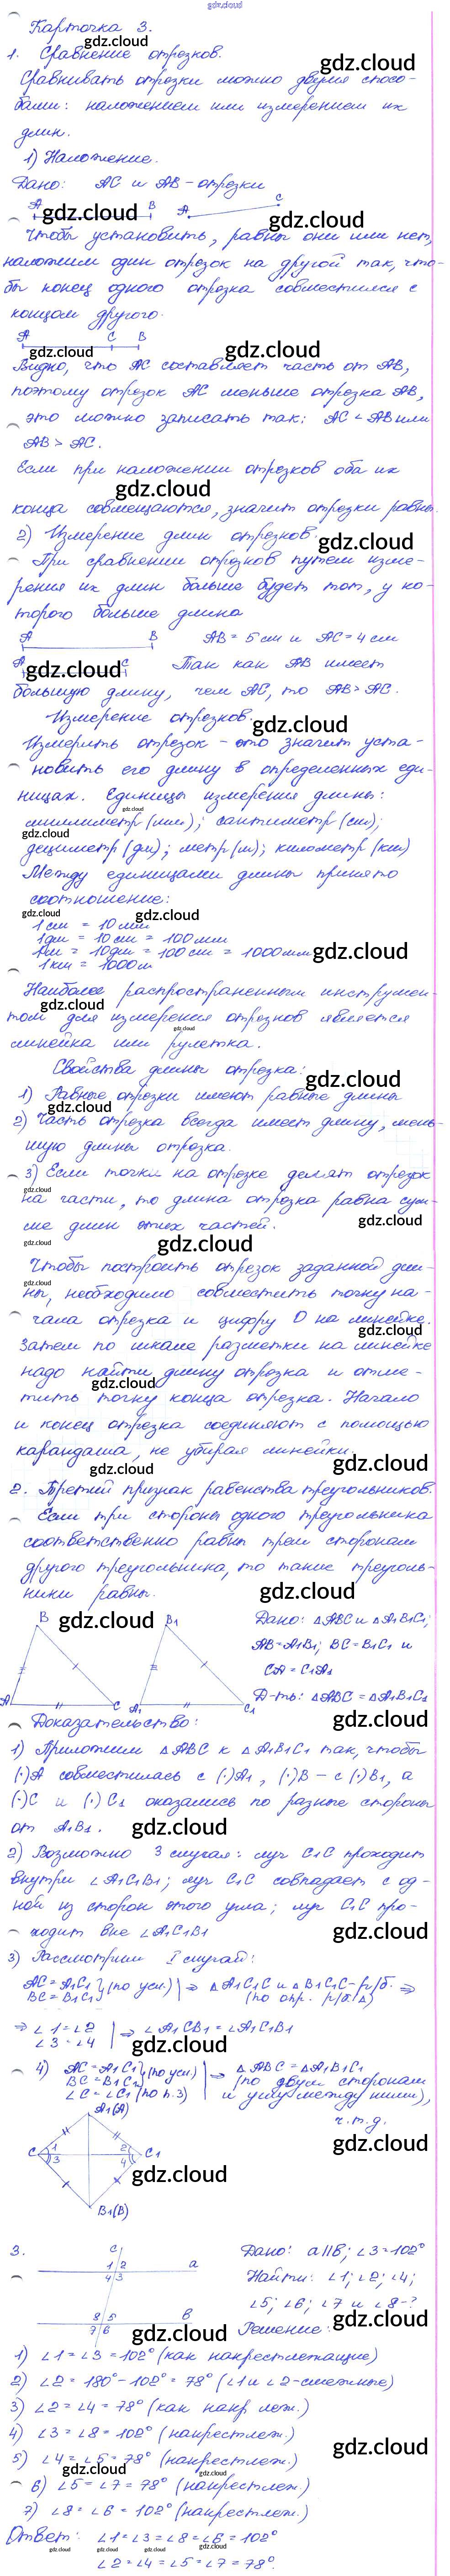 gdz.cloud
Карточка 3.
1. Сравнение отрезков.
Сравнивать отрезки можно двумя спосо-
бами: наложением или измерением их
длин.
1) Наложение.
Дано: AC и AB - отрезки
A B A C
Чтобы установить, равны они или нет,
наложим один отрезок на другой так, что-
бы конец одного отрезка совместился с
концом другого.
A C B
Видно, что AC составляет часть от AB,
поэтому отрезок AC меньше отрезка AB,
это можно записать так: AC < AB или
AB > AC.
Если при наложении отрезков оба их
конца совмещаются, значит отрезки равны.
2) Измерение длин отрезков.
При сравнении отрезков путем изме-
рения их длин больше будет тот, у ко-
торого больше длина
A B AB = 5 см и AC = 4 см
A C Так как AB имеет
большую длину, чем AC, то AB > AC.
Измерение отрезков.
Измерить отрезок - это значит уста-
новить его длину в определенных еди-
ницах. Единицы измерения длины:
миллиметр (мм); сантиметр (см);
дециметр (дм); метр (м); километр (км)
Между единицами длины принято
соотношение:
1 см = 10 мм
1 дм = 10 см = 100 мм
1 м = 10 дм = 100 см = 1000 мм
1 км = 1000 м
Наиболее распространенным инструмен-
том для измерения отрезков является
линейка или рулетка.
Свойства длины отрезка:
1) Равные отрезки имеют равные длины
2) Часть отрезка всегда имеет длину, мень-
шую длины отрезка.
3) Если точки на отрезке делят отрезок
на части, то длина отрезка равна сум-
ме длин этих частей.
Чтобы построить отрезок заданной дли-
ны, необходимо совместить точку на-
чала отрезка и цифру 0 на линейке.
Затем по шкале разметки на линейке
надо найти длину отрезка и отме-
тить точку конца отрезка. Начало
и конец отрезка соединяют с помощью
карандаша, не убирая линейки.
2. Третий признак равенства треугольников.
Если три стороны одного треугольника
соответственно равны трем сторонам
другого треугольника, то такие треуголь-
ники равны.
B B1 Дано: △ABC и △A1B1C1;
AB = A1B1; BC = B1C1 и
CA = C1A1
A C A1 C1 Д-ть: △ABC = △A1B1C1
Доказательство:
1) Приложим △ABC к △A1B1C1 так, чтобы
(·)A совместилась с (·)A1, (·)B - с (·)B1, а
(·)C и (·)C1 оказались по разные стороны
от A1B1.
2) Возможно 3 случая: луч C1C проходит
внутри ∠A1C1B1; луч C1C совпадает с од-
ной из сторон этого угла; луч C1C про-
ходит вне ∠A1C1B1
3) Рассмотрим I случай:
AC = A1C1 } (по усл.) | ⇒ △A1C1C и △B1C1C - р/б. ⇒
BC = B1C1 (по опр. р/б △)
⇒ ∠1 = ∠2 | ⇒ ∠A1CB1 = ∠A1C1B1
∠3 = ∠4
4) AC = A1C1 } (по усл.) | ⇒ △ABC = △A1B1C1
BC = B1C1 (по двум сторонам
∠C = ∠C1 (по п. 3) и углу между ними),
ч.т.д.
A1(A)
C 1 3 2 4 C1
B1(B)
3. c Дано: a∥b; ∠3 = 102°
1 2 a Найти: ∠1; ∠2; ∠4;
4 3 ∠5; ∠6; ∠7 и ∠8 - ?
8 5 b
7 6 Решение:
1) ∠1 = ∠3 = 102° (как накрестлежащие)
2) ∠2 = 180° - 102° = 78° (∠1 и ∠2 - смежные)
3) ∠2 = ∠4 = 78° (как накр. леж.)
4) ∠3 = ∠8 = 102° (накрестлеж.)
5) ∠4 = ∠5 = 78° (накрестлеж.)
6) ∠5 = ∠7 = 78° (накрестлеж.)
7) ∠8 = ∠6 = 102° (накрестлеж.)
Ответ: ∠1 = ∠3 = ∠8 = ∠6 = 102°
∠2 = ∠4 = ∠5 = ∠7 = 78°.